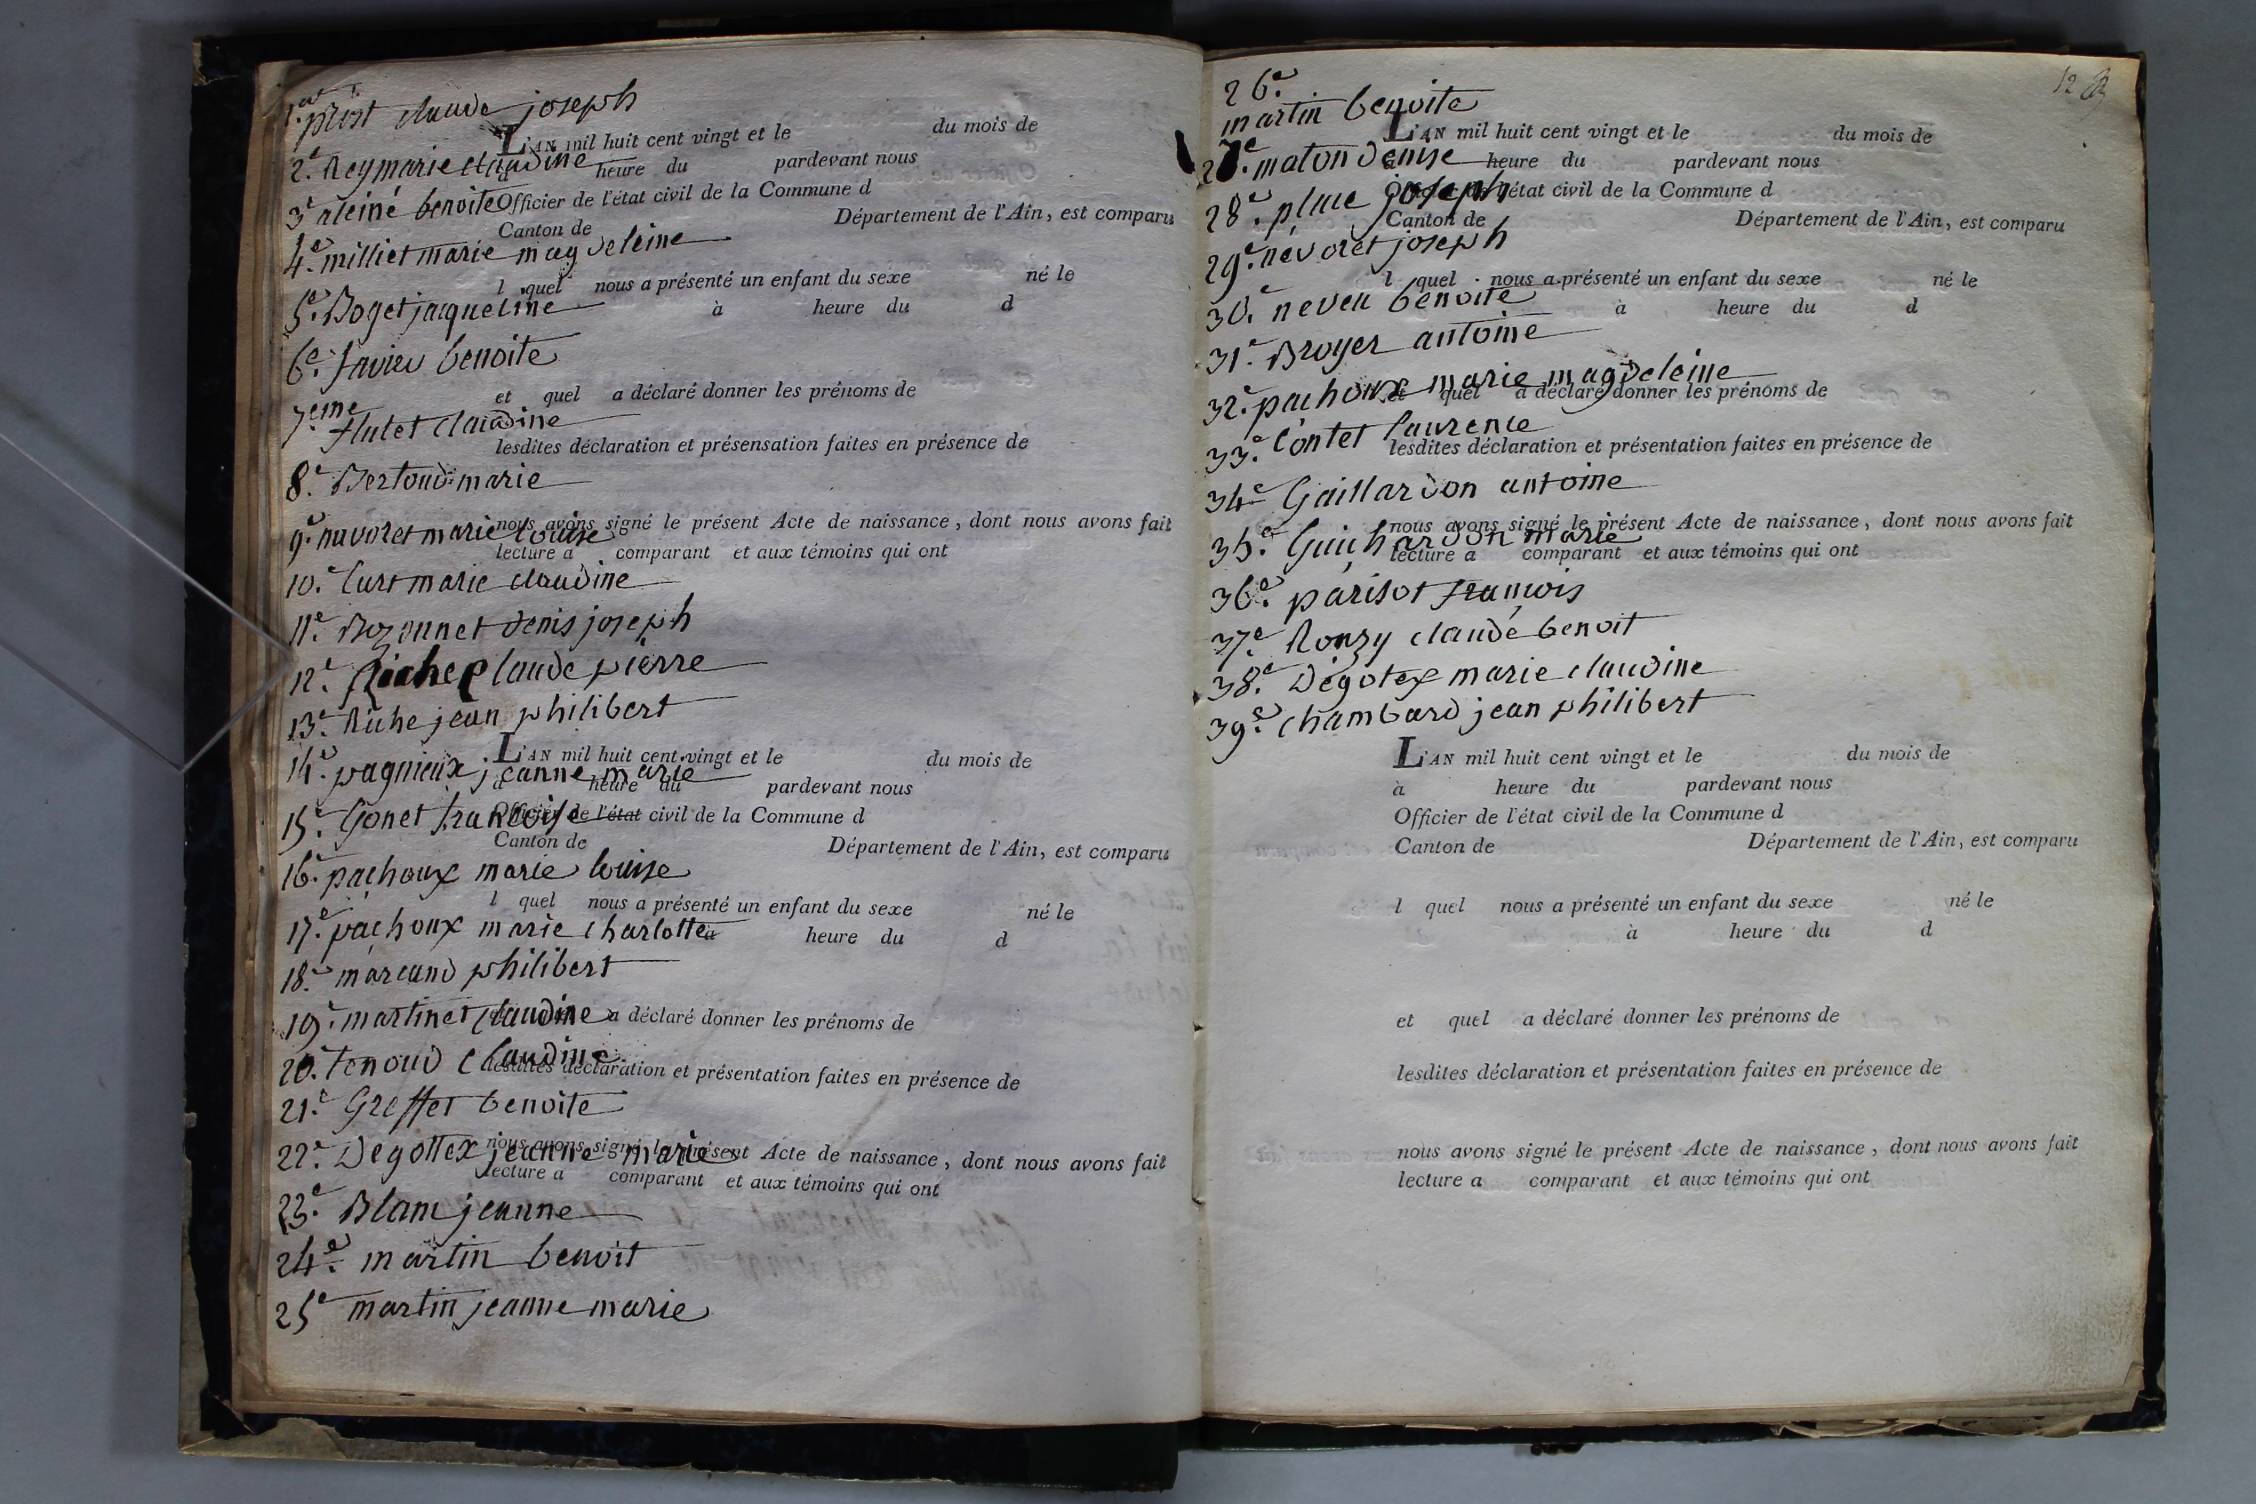 1er. prost claude joseph
L'AN mil huit cent vingt et le du mois de
2e. Rey marie claudine heure du pardevant nous
3e aleiné benoite Officier de l'état civil de la Commune d
Canton de Département de l'Ain, est comparu
4e. milliet marie magdeleine
l quel nous a présenté un enfant du sexe né le
5e. Boget jacqueline à heure du d
6e. favier benoite
et quel a déclaré donner les prénoms de
7.eme flutet claudine
lesdites déclaration et présensation faites en présence de
8e. Bertoud marie
nous avons signé le présent Acte de naissance, dont nous avons fait
9e. nuvoret marie louise
lecture a comparant et aux témoins qui ont
10e. Curt marie claudine
11e. Bozonnet denis joseph
12e. Riche claude pierre
13e. Riche jean philibert
L'AN mil huit cent vingt et le du mois de
14e. pagnieux jeanne marie
à heure du pardevant nous
15e. Gonet françoise
Officier de l'état civil de la Commune d
Canton de Département de l'Ain, est comparu
16e. pachoux marie louise
l quel nous a présenté un enfant du sexe né le
17e. pachoux marie charlotte à heure du d
18e. marcand philibert
19e. martinet claudine a déclaré donner les prénoms de
20e. Tenoud claudine
lesdites déclaration et présentation faites en présence de
21e. Greffet benoite
nous avons signé le présent Acte de naissance, dont nous avons fait
22e. Degottex jeanne marie
lecture a comparant et aux témoins qui ont
23e. Blanc jeanne
24e. martin benoit
25e martin jeanne marie
12
26e.
martin benoite
L'AN mil huit cent vingt et le du mois de
27e. maton denise heure du pardevant nous
28e. place joseph
Officier de l'état civil de la Commune d
Canton de Département de l'Ain, est comparu
29e. névoret joseph
l quel nous a présenté un enfant du sexe né le
30e. neveu benoite
à heure du d
31e. Broyer antoine
32e. pachoux marie magdeleine
et quel a déclaré donner les prénoms de
33e. Contet laurence
lesdites déclaration et présentation faites en présence de
34e Gaillardon antoine
nous avons signé le présent Acte de naissance, dont nous avons fait
35e. Guichardon marie
lecture a comparant et aux témoins qui ont
36e. parisot françois
37e. Ronzy claude benoit
38e. Degotex marie claudine
39e. chambard jean philibert
L'AN mil huit cent vingt et le du mois de
à heure du pardevant nous
Officier de l'état civil de la Commune d
Canton de Département de l'Ain, est comparu
l quel nous a présenté un enfant du sexe né le
à heure du d
et quel a déclaré donner les prénoms de
lesdites déclaration et présentation faites en présence de
nous avons signé le présent Acte de naissance, dont nous avons fait
lecture a comparant et aux témoins qui ont